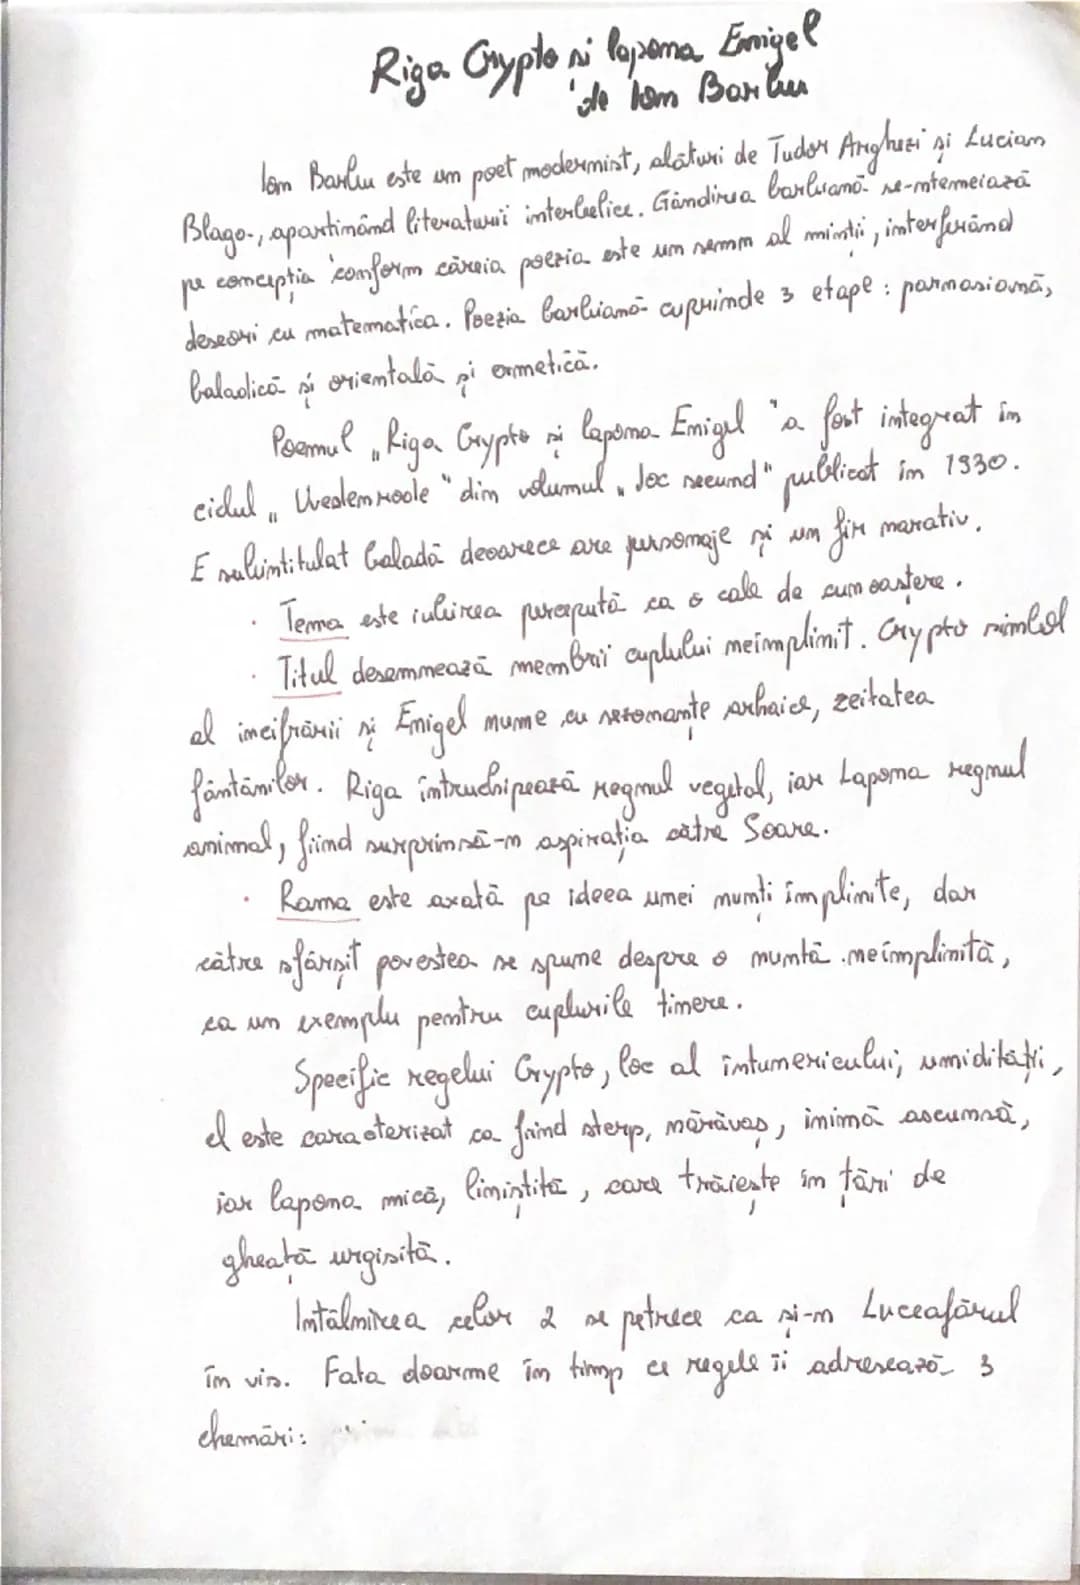 Riga Crypto și lapona Enigel
de Ion Barbu
Ion Barbu este un poet modernist, alături de Tudor Arghezi și Lucian
Blaga, aparținând literaturii interbelice. Gândirea barbiană se-ntemeiază
pe concepția conform căreia poezia este un semn al minții, interferând
deseori cu matematica. Poezia barbiană cuprinde 3 etape: parnasiană,
baladică și orientală și ermetică.
Poemul „Riga Crypto și lapona Enigel" a fost integrat în
ciclul „Uvedenrode" din volumul „Joc secund" publicat în 1930.
E subintitulat baladă deoarece are personaje și un fir narativ.
· Tema este iubirea percepută ca o cale de cunoaștere.
· Titul desemnează membrii cuplului neîmplinit. Crypto simbol
al incifrării și Enigel nume cu rezonanțe arhaice, zeitatea
fântânilor. Riga întruchipează regnul vegetal, iar Lapona regnul
animal, fiind surprinsă-n aspirația către Soare.
· Rama este axată pe ideea unei nunți împlinite, dar
către sfârșit povestea se spune despre o nuntă neîmplinită,
ca un exemplu pentru cuplurile tinere.
Specific regelui Crypto, loc al întunericului, umidității,
el este caracterizat ca fiind sterp, nărăvaș, inimă ascunsă,
iar lapona mică, liniștită, care trăiește în țări de
gheață urgisită.
Întâlnirea celor 2 se petrece ca și-n Luceafărul
în vis. Fata doarme în timp ce regele îi adresează 3
chemări: